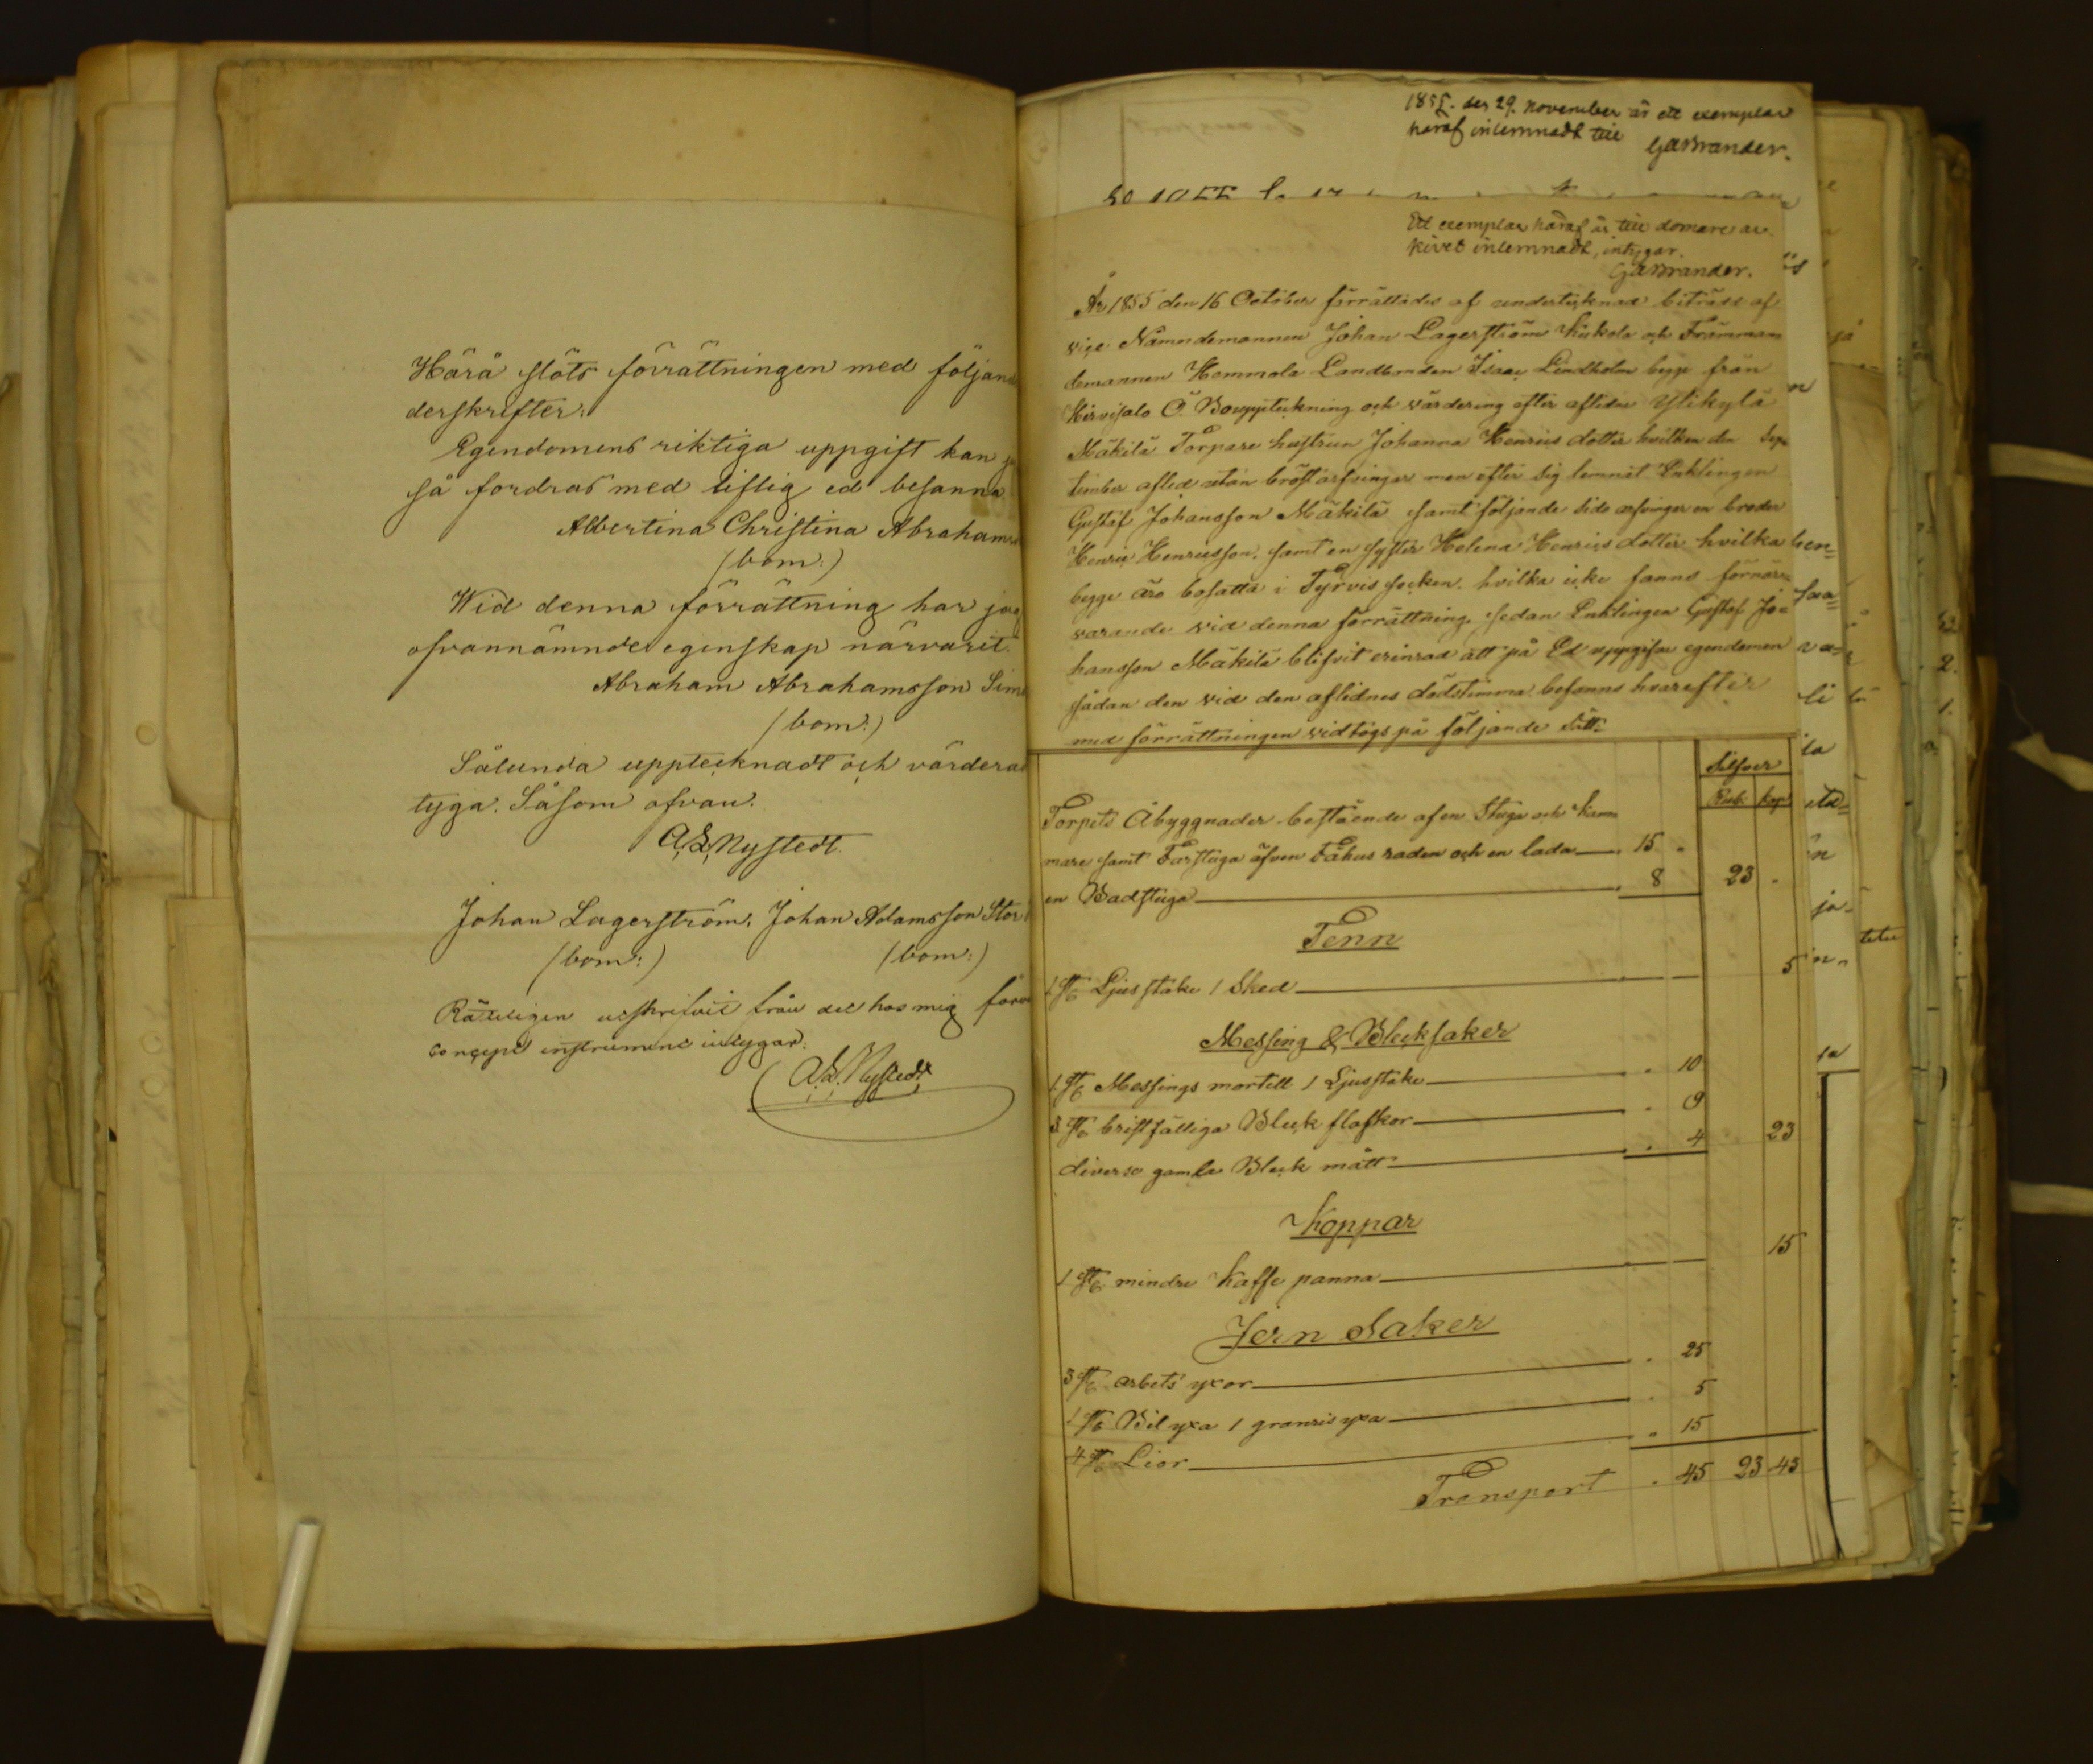 Härå slöts förrättningen med följan
derskrifter:
Egendomens riktiga uppgift kan
så fordras med liflig ed besanna
Albertina Christina Abrahams
(bom:)
Wid denna förrättning har jag
ofvannämnde egenskap närvarit.
Abraham Abrahamsson Sim
(bom:)
Sålunda upptecknadt och värderad
tyga. Såsom ofvan.
A.L.Nystedt.
Johan Lagerström. Johan Adamsson Stor
(bom:) (bom:)
Rätteligen utskrifvit från det hos mig förva
concept instrument intygar:
A.L.Nystedt
1855. den 29. November är ett exemplar
häraf inlemnadt till
GABrander.
Ett exemplar häraf är till domare ar-
kivet inlemnadt, intygar.
GABrander.
År 1855 den 16 October förrättades af undertecknad biträdd af
vice Nämndemannen Johan Lagerström Kukola och Främmam
demannen Hemmola Landbonden Isaac Lindholm begge från
Hirvisalo Ö Bouppteckning och värdering efter aflidne Ylikylä
Mäkilä Torpare hustrun Johanna Henrics dotter hvilken den Sep
tember afled utan bröstarfvingar men efter sig lemnat Enklingen
Gustaf Johansson Mäkilä samt följande sido arfvingar en broder
Henric Henricsson. samt en syster Helena Henrics dotter hvilka
begge äro bosatta i Tyrvis socken. hvilka icke fanns förnär
varande vid denna förrättning. sedan Enklingen Gustaf Jo=
hansson Mäkilä blifvit erinrad att på Ed uppgifva egendomen
sådan den vid den aflidnes dödstimma befanns hvarefter
med förrättningen vidtogs på följande Sätt:
Silfver
Rub. Kop.
Torpets Åbyggnader bestående af en Stuga och Kam
mare samt Farstuga äfven Fähus raden och en lada 15 "
en Badstuga 8 23 "
Tenn
1 St. Ljusstake 1 Sked 5
Messing & Blecksaker
1 St. Messings mortell 1 Ljusstake 10
3 St. bristfälliga Bleck flaskor 9
diverse gamla Bleck mått 4 23
Koppar
1 St. mindre Kaffe panna 15
Jern Saker
3 St. arbets yxor 25
1 St. Bil yxa 1 granris yxa 5
4 St. Lior 15
Transport 45 23 43